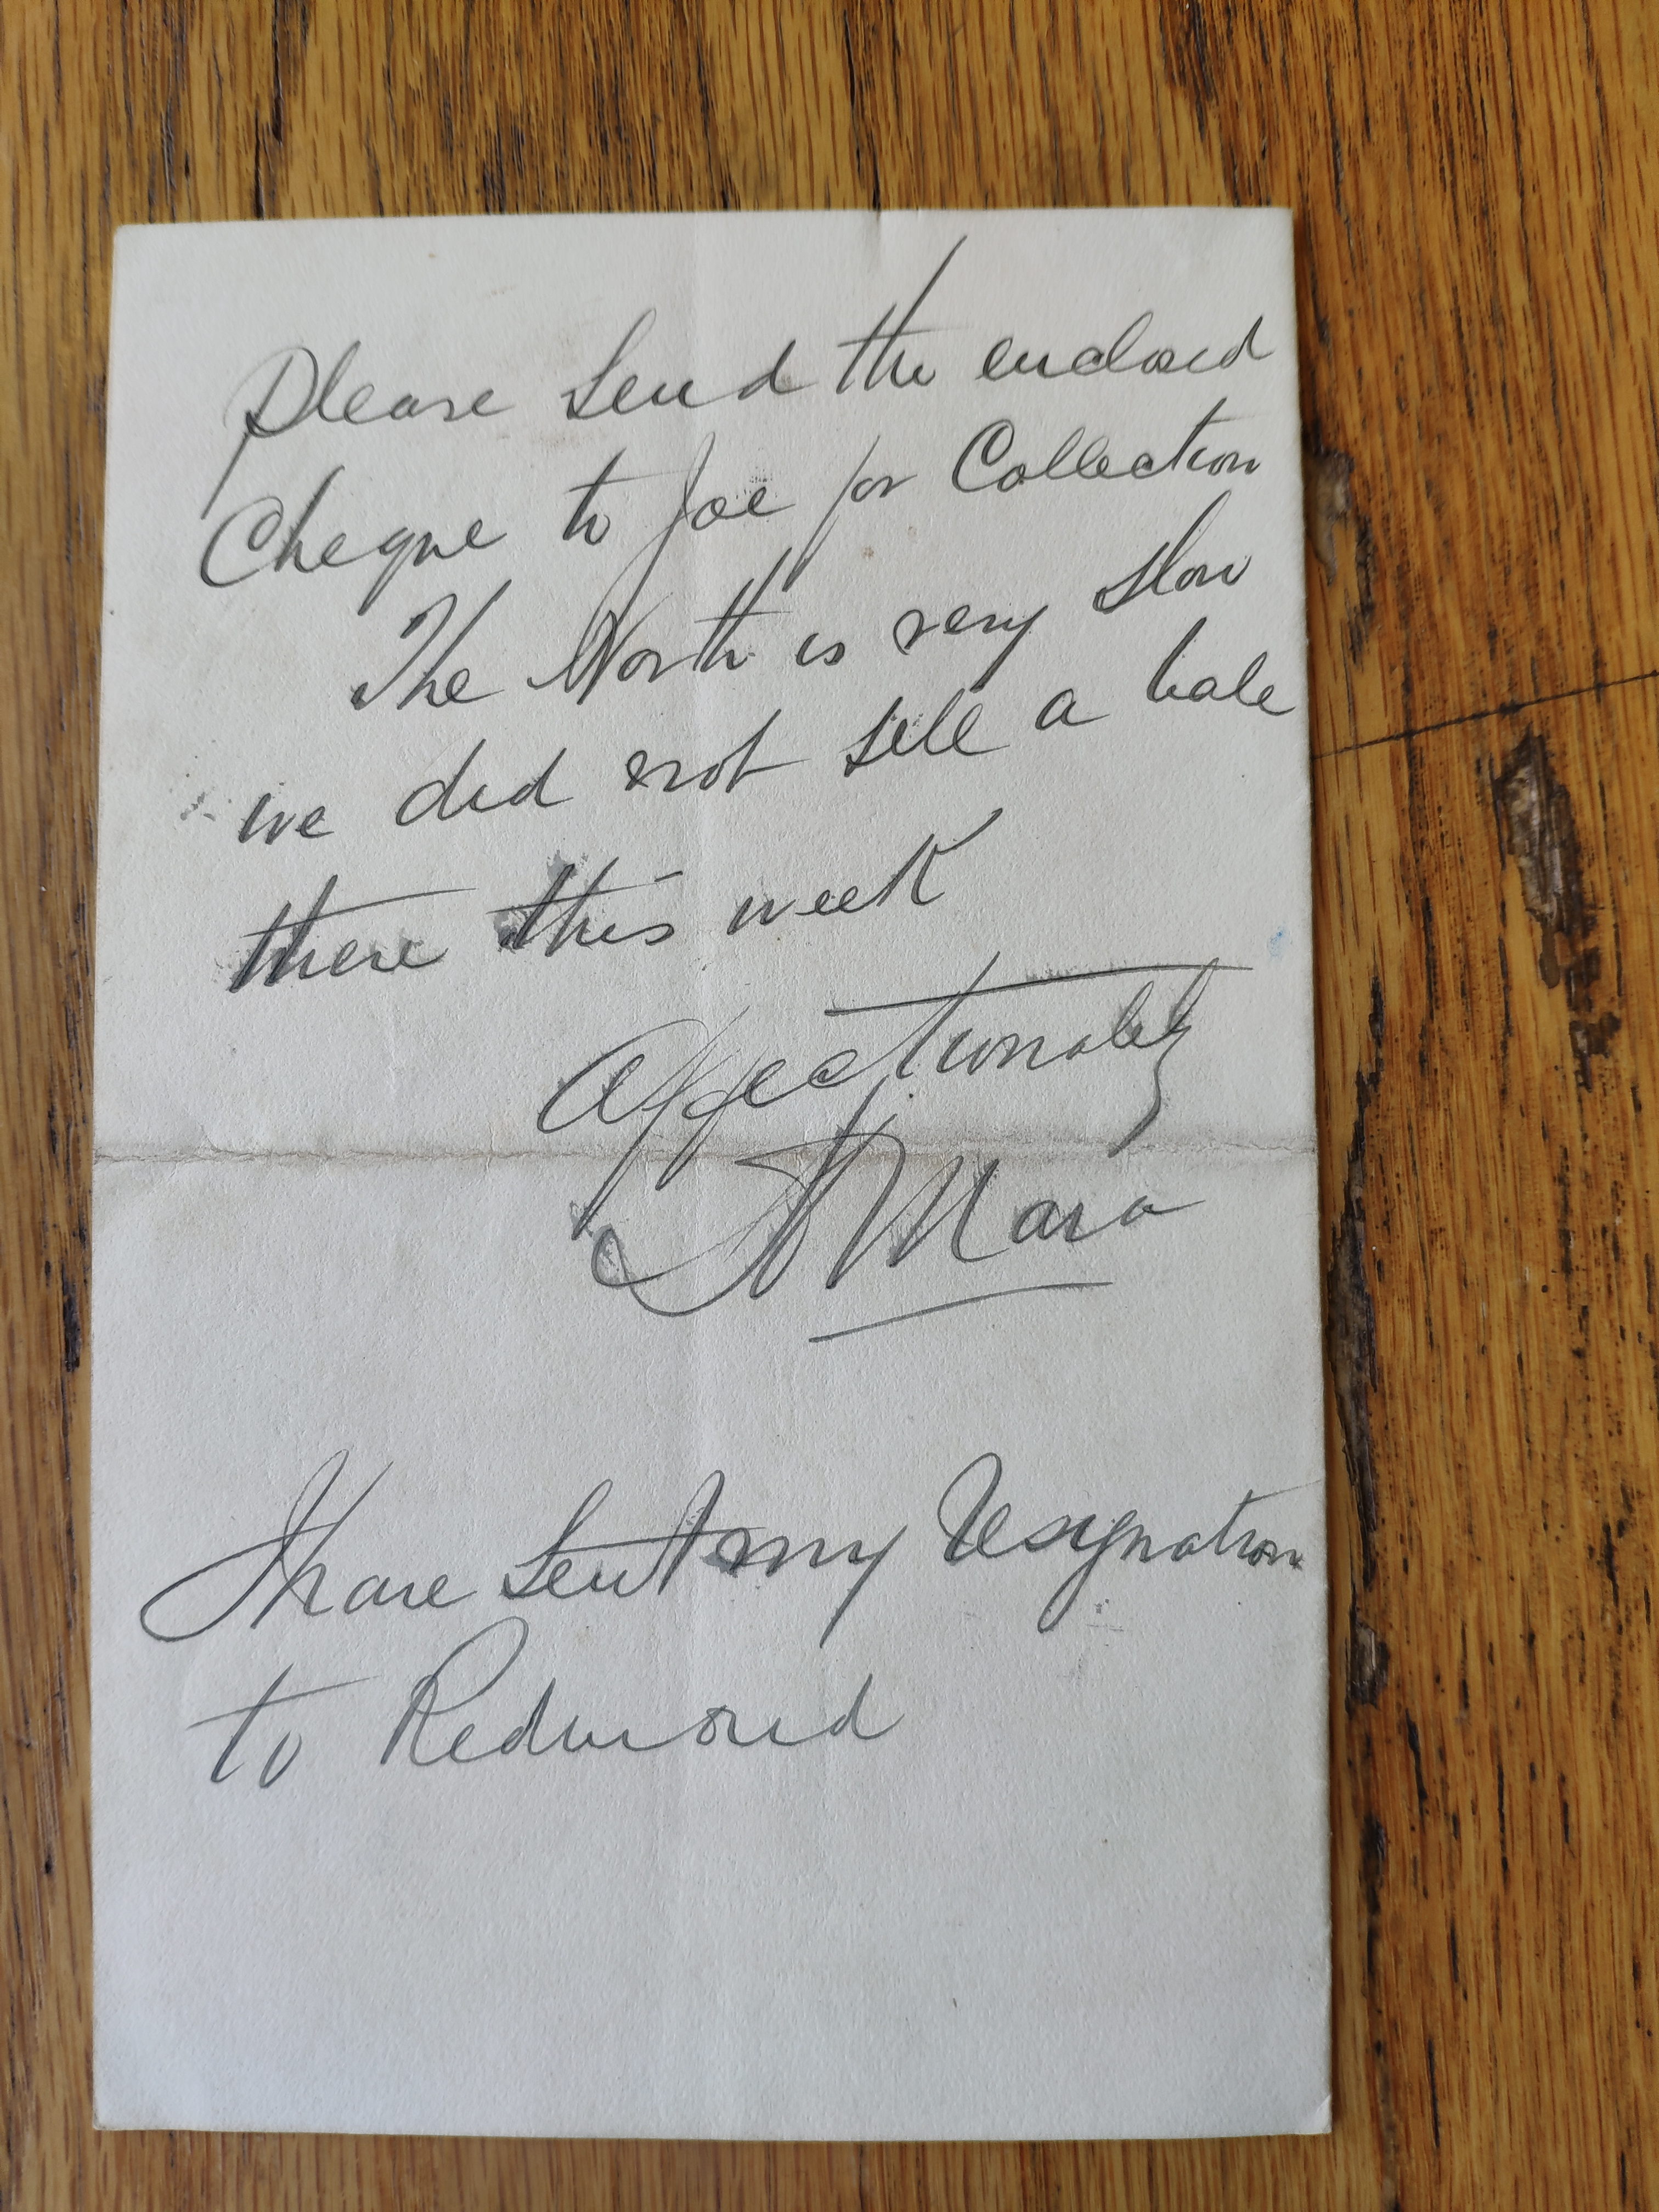 Please send the enclosed
Cheque to Joe for Collection
The North is very slow
we did not sell a bale
there this week
Affectionately
S O'Mara
I have sent my resignation
to Redmond